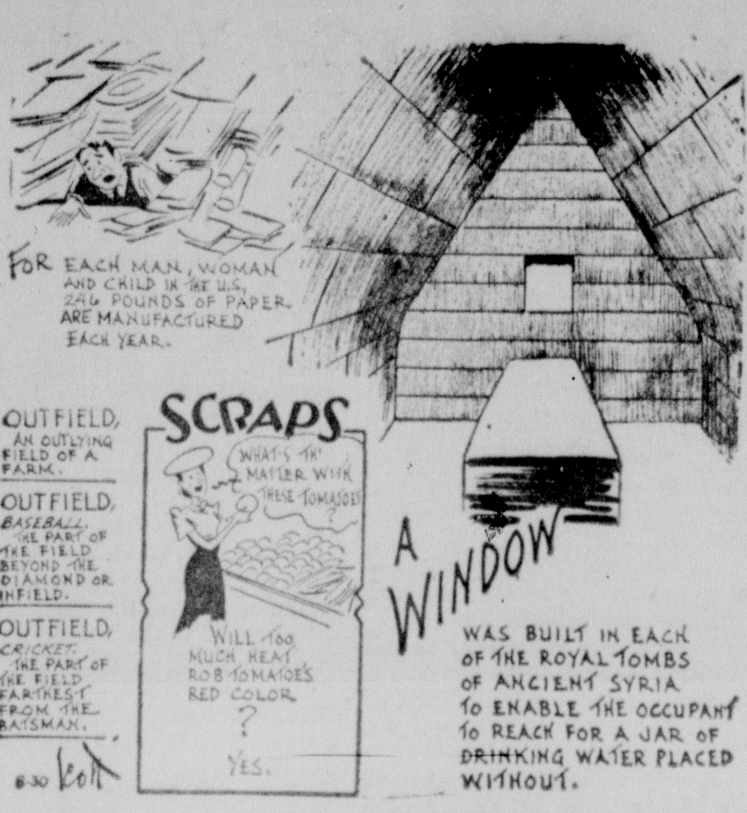 FOR EACH MAN, WOMAN
AND CHILD IN THE U.S,
246 POUNDS OF PAPER
ARE MANUFACTURED
EACH YEAR.
OUTFIELD,
AN OUTLYING
FIELD OF A
FARM.
OUTFIELD,
BASEBALL,
THE PART OF
THE FIELD
BEYOND THE
DIAMOND OR
INFIELD.
OUTFIELD,
CRICKET,
THE PART OF
THE FIELD
FARTHEST
FROM THE
BATSMAN.
6-30 Scott
SCRAPS
WHAT'S TH'
MATTER WITH
THESE TOMATOES
?
WILL TOO
MUCH HEAT
ROB TOMATOE'S
RED COLOR
?
YES.
A
WINDOW
WAS BUILT IN EACH
OF THE ROYAL TOMBS
OF ANCIENT SYRIA
TO ENABLE THE OCCUPANT
TO REACH FOR A JAR OF
DRINKING WATER PLACED
WITHOUT.